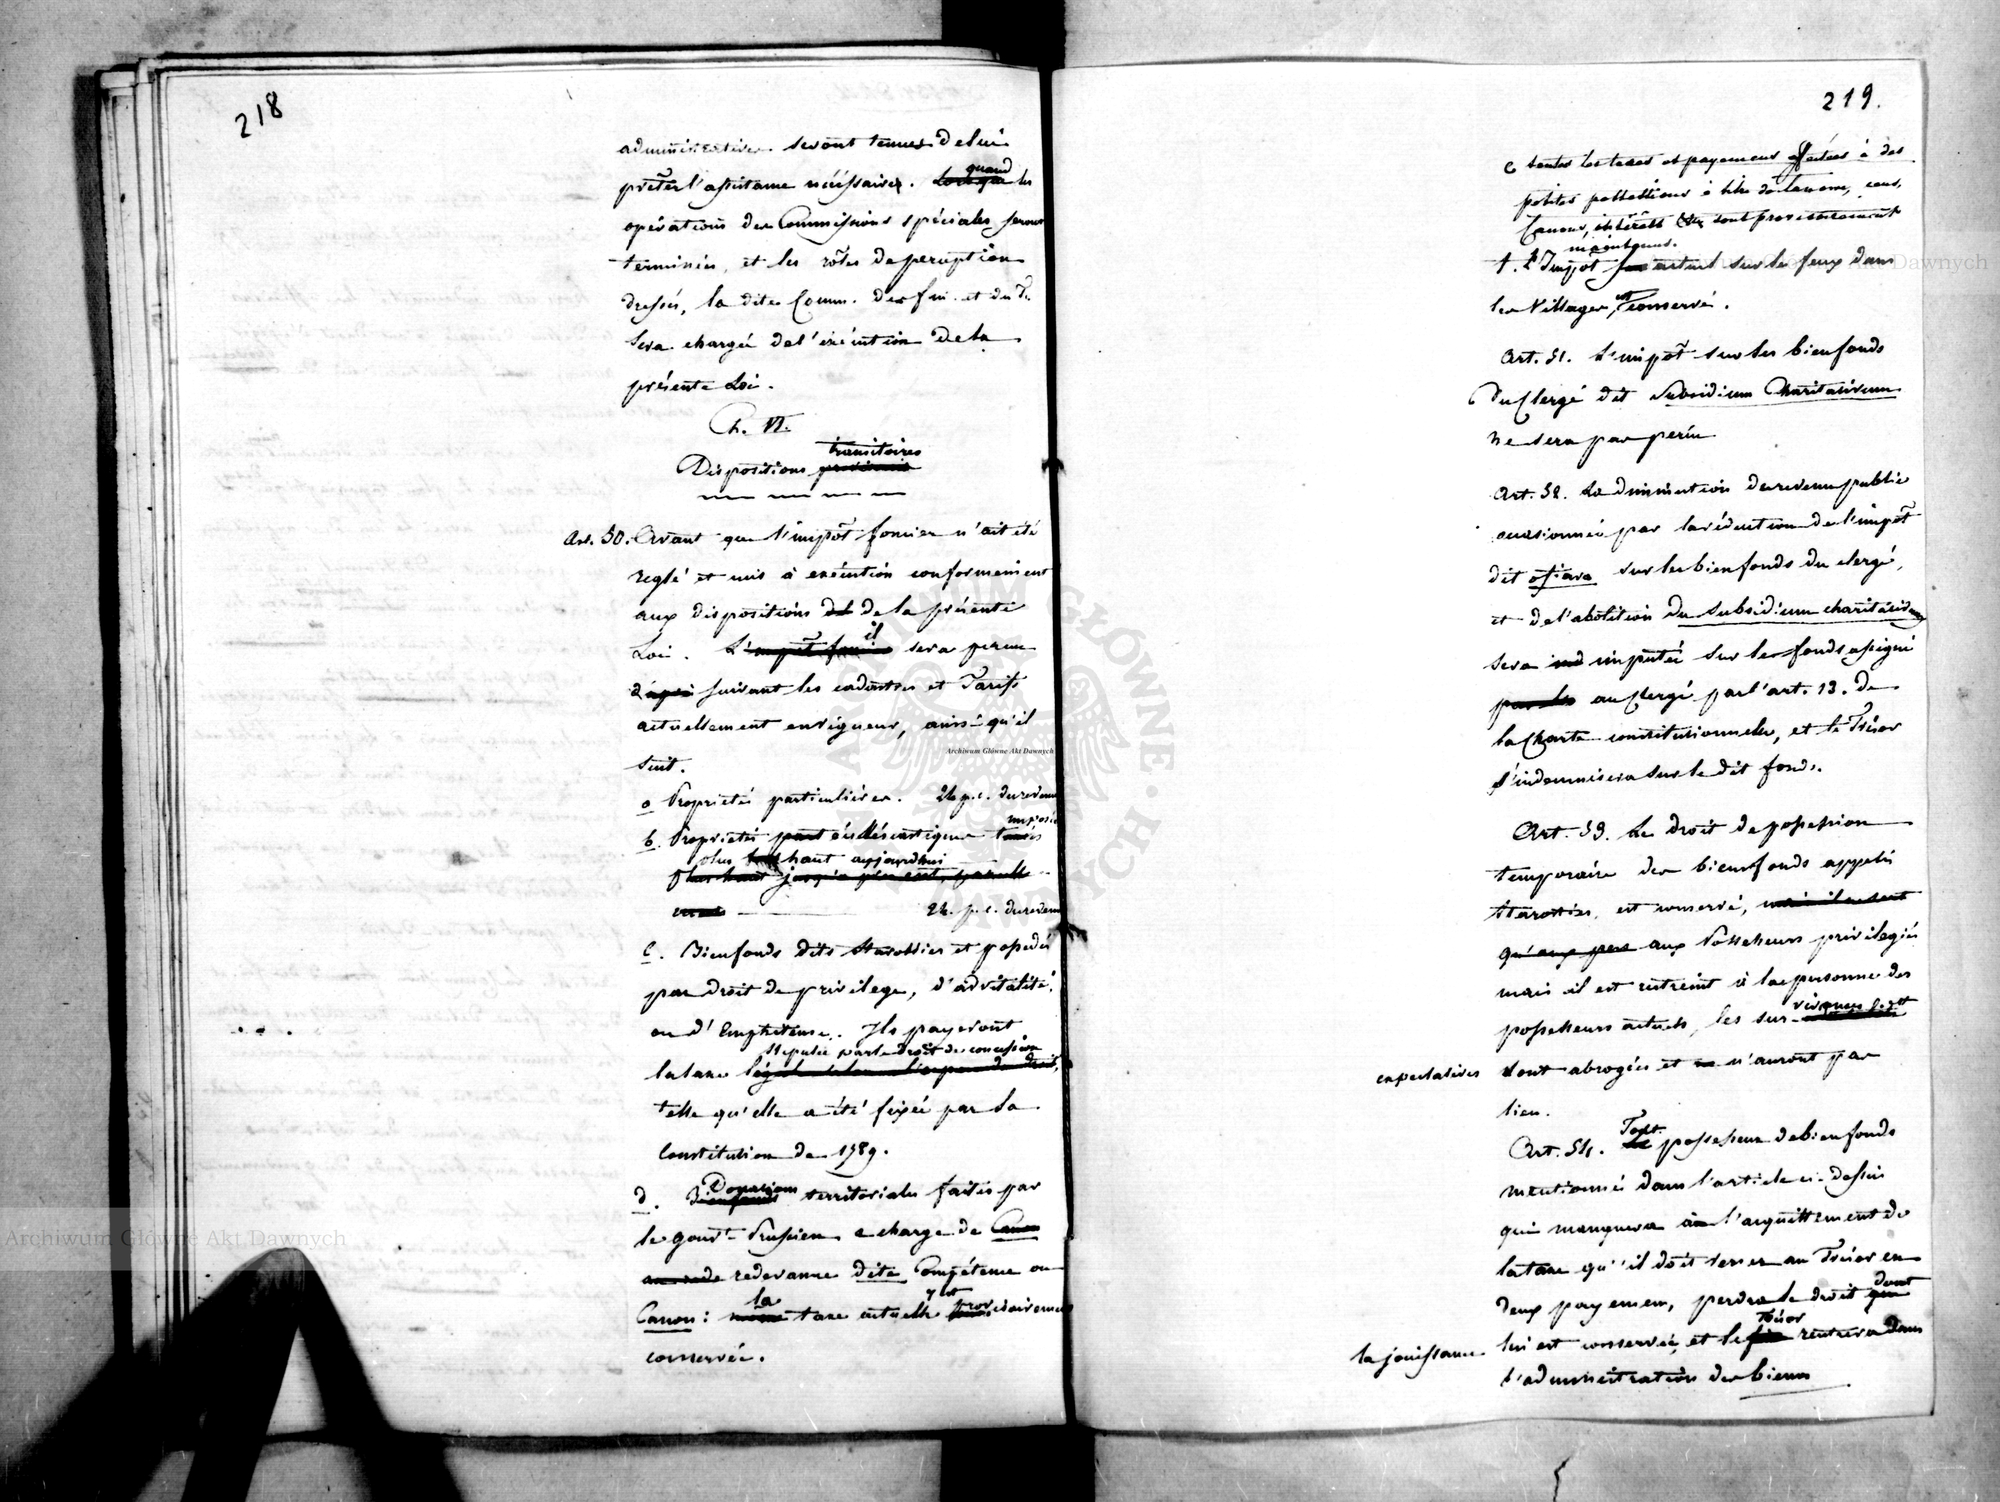 218
administratives seront tenues de lui
prêter l'assistance nécessaire. Lorsque quand les
opérations des Commissions spéciales seront
terminées, et les rôles de perception
dressés, la dite Comm. des fin. et du Tr.
sera chargée de l'exécution de la
présente Loi.
Ch. VI.
transitoires
Dispositions
Art. 50. Avant que l'impôt foncier n'ait été
reglé et mis à exécution conformement
aux dispositions de la présente
Loi. L'impôt foncier il sera perçu
d'après suivant les cadastres et Tarifs
actuellement en vigueur, ainsi qu'il
suit.
a Proprietés particulières. 24 p.c. du revenu
imposés
b. Proprietés part ecclésiastiques taxés
plus haut aujourdhui
plus haut jusqu'à présent,
24. p.c. du revenu
c. Bienfonds dits Starosties et possedés
par droit de privilege, d'advitalité,
ou d'Emphiteuse. Ils payeront
stipulée par le droit de concession
la taxe
telle qu'elle a été fixée par la
Constitution de 1789.
d. Bienfonds Donations territoriales faites par
le gouvt Prussien a charge de Canon
redevance dite Compétence ou
Canon: même la taxe actuelle y est provisoirement
conservée.
219.
e toutes les taxes et payemens affectées à des
petites possessions à titre de cens,
Canons, intérêts sont provisoirement
maintenus.
f. L'Impôt actuel sur les feux dans
les Villages, est conservé.
Art. 51. L'impôt sur les bienfonds
du Clergé dit Subsidium Charitativum
ne sera pas perçu
Art. 52. La diminution du revenu public
occasionnée par la réduction de l'impôt
dit ofiara sur les bienfonds du clergé,
et de l'abolition du subsidium charitativum
sera imputée sur le fonds assigné
par les au Clergé par l'art. 13. de
la Charte constitutionnelle, et le Trésor
s'indemnisera sur le dit fonds.
Art. 53. Le droit de possession
temporaire des bienfonds appelés
Starosties, est conservé, mais il ne sera
qu'aux pers aux Possesseurs privilegiés
mais il est restreint à la personne des
possesseurs actuels, les sur-
expectatives sont abrogées et n'auront pas
lieu.
Art. 54. Tout possesseur de bienfonds
mentionnés dans l'article ci-dessus
qui manquera à l'acquittement de
la taxe qu'il doit verser au Trésor en
deux payemens, perdra le droit que dont
la jouissance lui est conservée, et le Trésor rentrera dans
l'administration des biens
Archiwum Główne Akt Dawnych
Archiwum Główne Akt Dawnych
Archiwum Główne Akt Dawnych